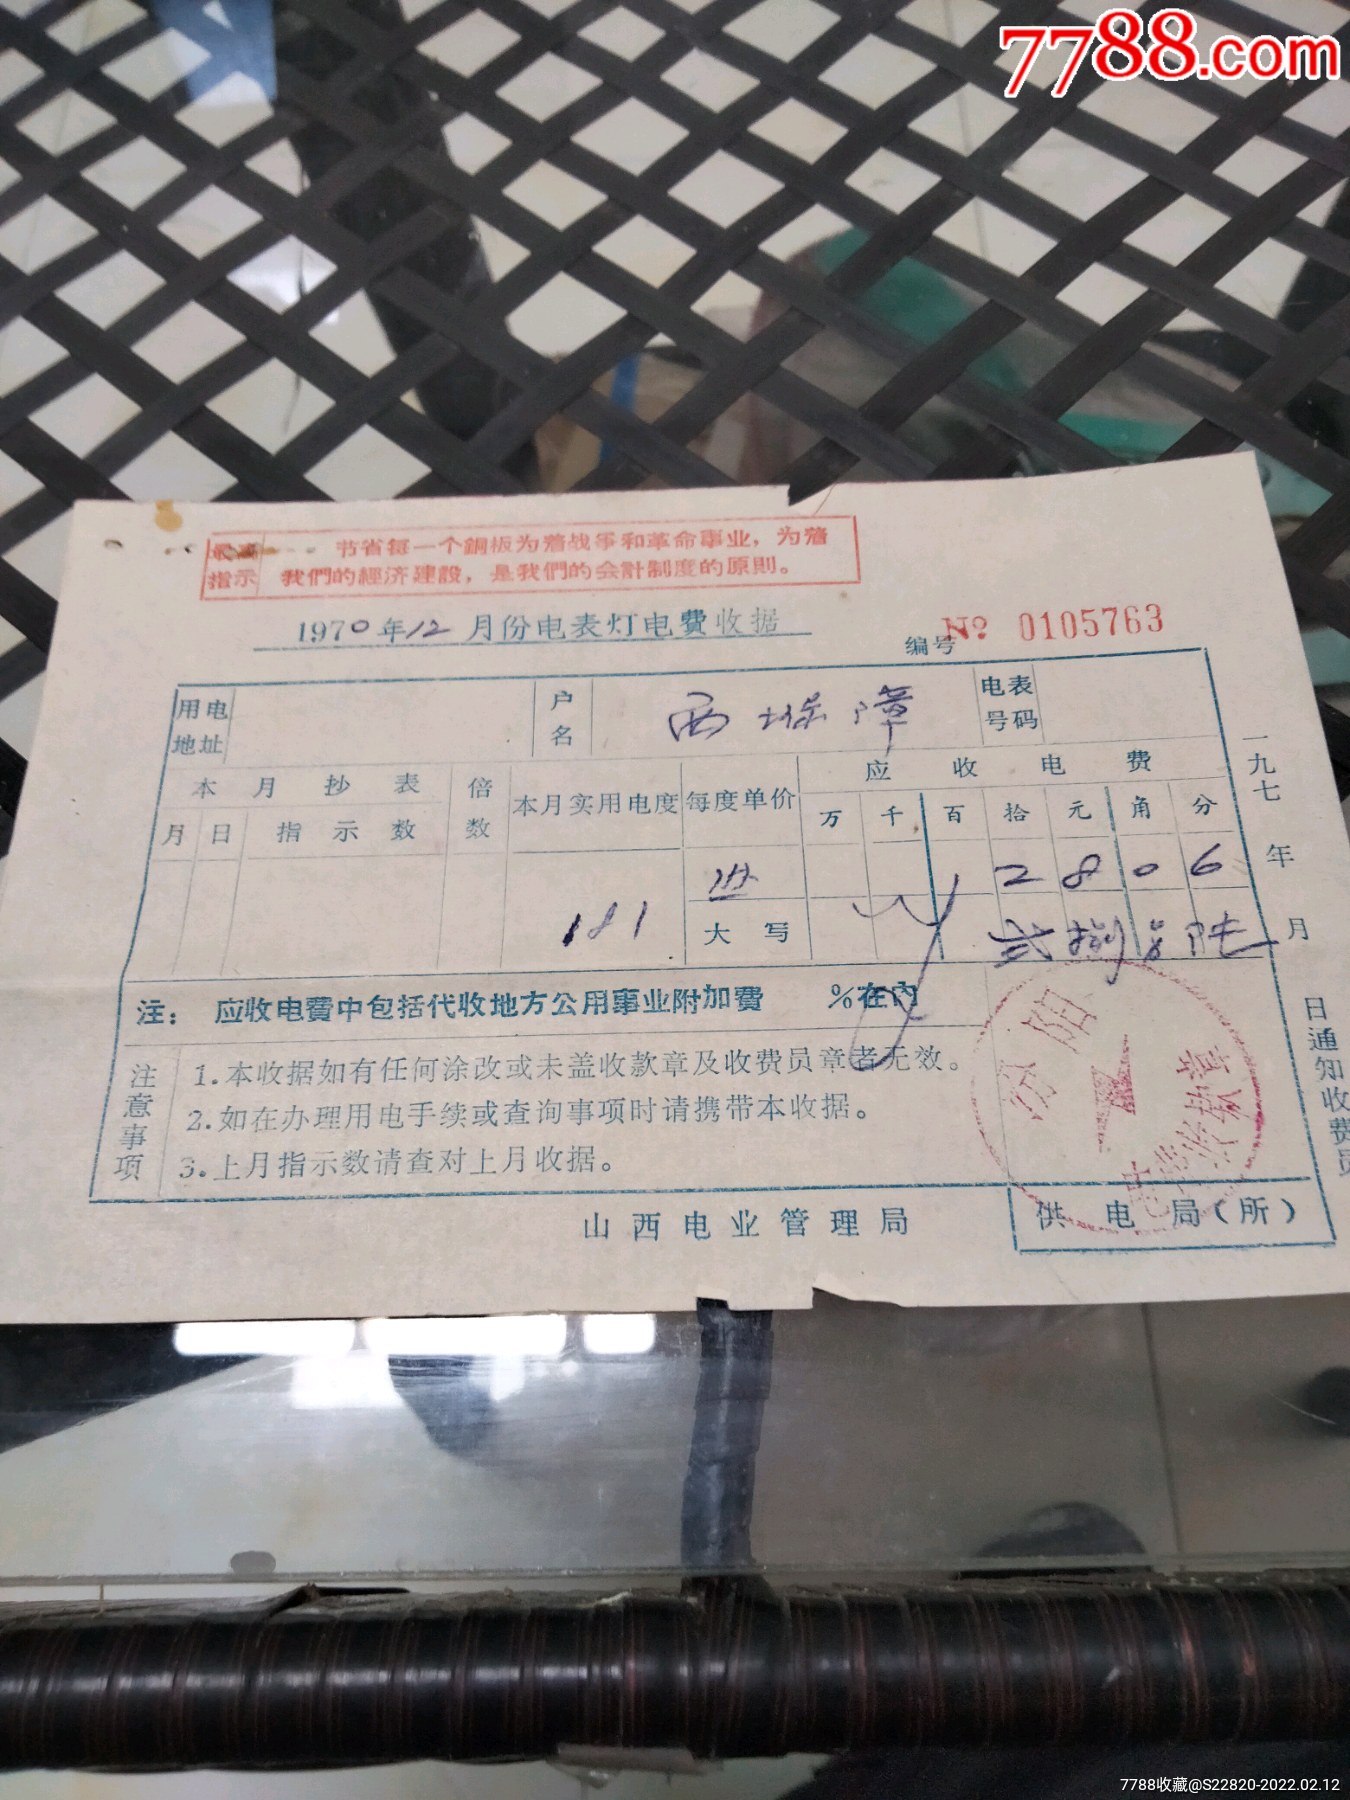 7788.com
最高指示
节省每一个銅板为着战爭和革命事业，为着
我們的經济建設，是我們的会計制度的原則。
1970年12月份电表灯电费收据
编号 № 0105763
用电地址
户名
西堡障
电表号码
本月抄表
倍数
本月实用电度
每度单价
应收电费
月 日 指示数
万 千 百 拾 元 角 分
181
2 8 0 6
大写
贰 捌 另 陆
注： 应收电費中包括代收地方公用事业附加費 %在内
注意事项
1.本收据如有任何涂改或未盖收款章及收费员章者无效。
2.如在办理用电手续或查询事项时请携带本收据。
3.上月指示数请查对上月收据。
山西电业管理局
供电局(所)
一九七 年 月 日通知收费员
汾阳
7788收藏@S22820-2022.02.12